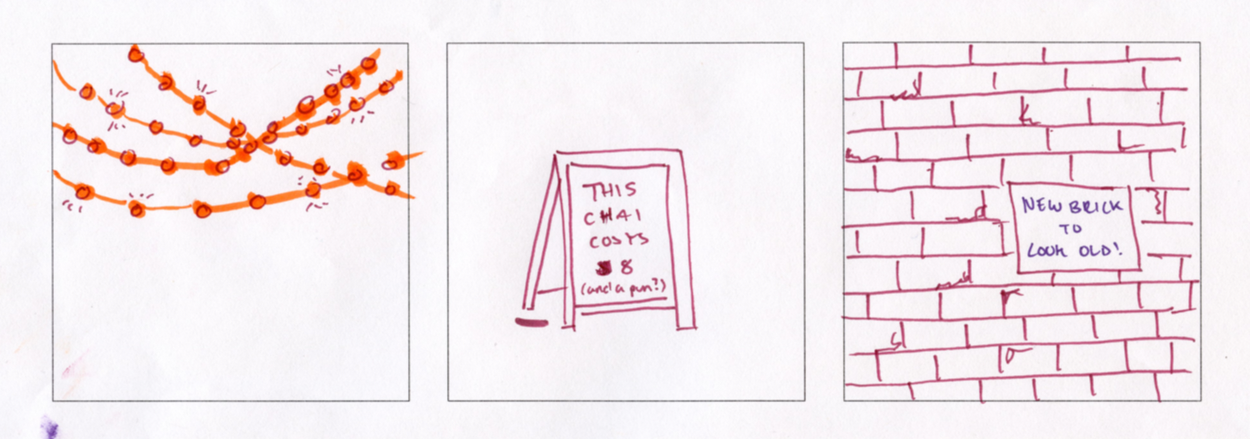 THIS
CHAI
COSTS
$8
(and a pun?)
NEW BRICK
TO
LOOK OLD!